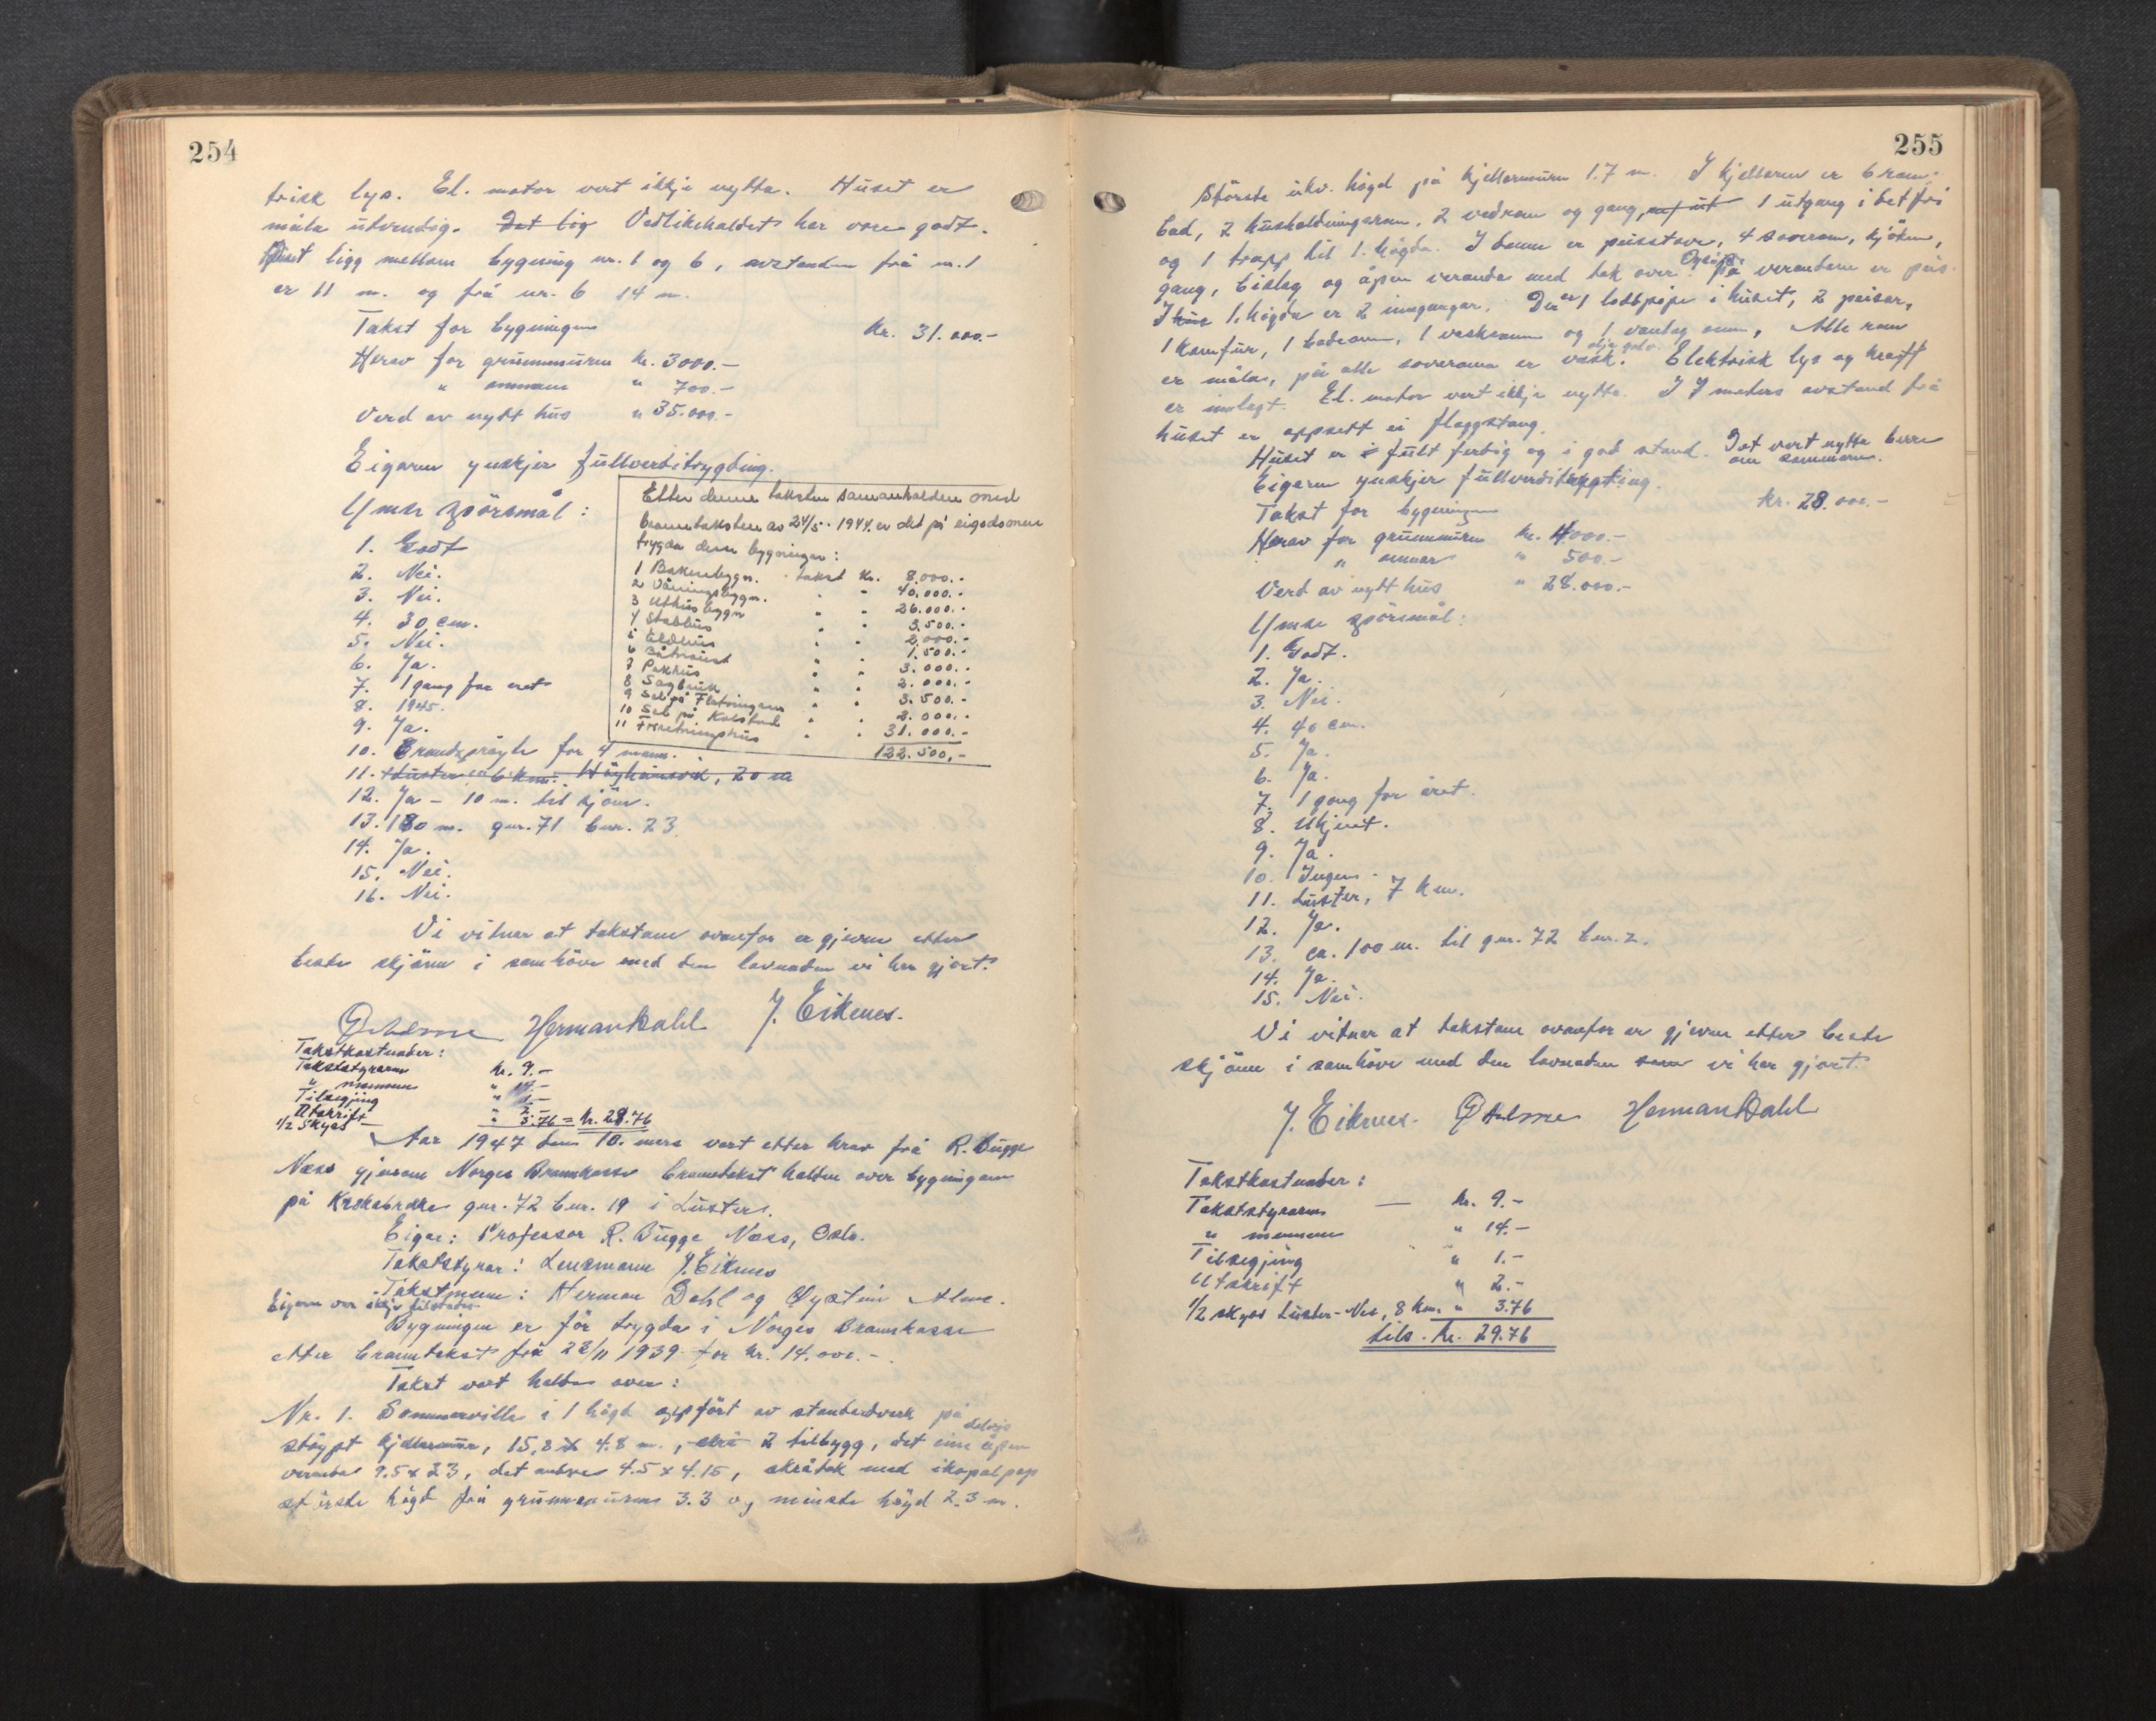 254
trisk lys. El. motor vert ikkje nytta. Huset er
måla utvendig. Det lig Vedlikehaldet har vore godt.
Huset ligg mellom bygning nr. 1 og 6, avstanden frå nr. 1
er 11 m. og frå nr. 6 14 m.
Takst for bygningen kr. 31.000.-
Herav for grunnmuren kr. 3000.-
" omnane " 700.-
Verd av nytt hus " 35.000.-
Eigaren ynskjer fullverditrygding.
Ymse spörsmål:
1. Godt
2. Nei.
3. Nei.
4. 30 cm.
5. Nei.
6. Ja.
7. 1 gang for året
8. 1945.
9. Ja.
10. Brandsprøyte for 4 mann.
11. Luster 6 km. Høyheimsvik, 20 m
12. Ja - 10 m. til sjöen.
13. 180 m. gnr. 71 bnr. 23.
14. Ja.
15. Nei.
16. Nei.
Etter denne taksten samanhalden med
branntaksten av 24/5. 1944. er det på eigedomen
trygda desse bygningar:
1 Bakarbygn. takst kr. 8.000.-
2 Våningsbygn. " " 40.000.-
3 Uthusbygn " " 26.000.-
4 Stabbur " " 3.500.-
5 Eldhus " " 2.000.-
6 Båtnaust " " 1.500.-
7 Pakkhus " " 3.000.-
8 Sagbruk " " 2.000.-
9 Sel på Flatningane " " 3.500.-
10 Sel på Kolstad " " 2.000.-
11 Forretningshus " " 31.000.-
122.500,-
Vi vitnar at takstane ovanfor er gjevne etter
beste skjönn i samhöve med den lovnaden vi har gjort.
Ø Alme Herman Dahl J. Eiknes.
Takstkostnader:
Takststyraren kr. 9.-
" mennene " 14.-
Tilsegjing " 1.-
Utskrift " 2.-
1/2 Skyss - " 3.76 = kr. 29.76
Aar 1947 den 10. mars vart etter krav frå R. Bugge
Næss gjenom Norges Brannkasse branntakst halden over bygningane
på Krokabrokke gnr. 72 bnr. 19 i Luster.
Eigar: Professor R. Bugge Næss, Oslo.
Takststyrar: Lensmann J. Eiknes
Takstmenn: Herman Dahl og Øystein Alme.
Eigaren var ikkje tilstades
Bygningen er för trygda i Norges Brannkasse
etter branntakst frå 22/11 1939 for kr. 14.000.-.
Takst vart halden over:
Nr. 1. Sommervilla i 1 högd oppfört av standardverk på
støypt kjellarmur, 15,8 x 4.8 m., 2 tilbygg, det eine åpen
delvis
veranda 9.5 x 2.3, det andre 4.5 x 4.15, skråtak med ikopalpap
störste högd frå grunnmuren 3.3 og minste høyd 2.3 m.
255
Störste utv. högd på kjellarmuren 1.7 m. I kjellaren er 6 rom:
bad, 2 hushaldningsrom, 2 vedrom og gang, 1 utgang i det fri
og 1 trapp til 1. högda. I denne er peisstove, 4 soverom, kjöken,
gang, bislag og åpen veranda med tak over. Også på verandaen er peis.
I hus 1. högda er 2 inngangar. Der er 1 lodspipe i huset, 2 peisar,
1 komfyr, 1 badeomn, 1 vaskeomn og 1 vanleg omn. Alle rom
er måla, på alle soveroma er vask. Elektrisk lys og kraft
er innlagt. El. motor vert ikkje nytta. I 7 meters avstand frå
huset er oppsett ei flaggstong.
Huset er fullt ferdig og i god stand. Det vert nytta berre
om sommaren.
Eigaren ynskjer fullverditrygding.
Takst for bygningen kr. 28.000.-
Herav for grunnmuren kr. 4000.-
" omnar " 500.-
Verd av nytt hus " 28.000.-
Ymse spörsmål:
1. Godt.
2. Ja.
3. Nei.
4. 40 cm.
5. Ja.
6. Ja.
7. 1 gong for året.
8. Ukjent.
9. Ja.
10. Ingen.
11. Luster, 7 km.
12. Ja.
13. ca. 100 m. til gnr. 72 bnr. 2.
14. Ja.
15. Nei.
Vi vitnar at takstane ovanfor er gjevne etter beste
skjönn i samhöve med den lovnaden som vi har gjort.
J. Eiknes. Ø Alme Herman Dahl
Takstkostnader:
Takststyraren - kr. 9.-
" mennene " 14.-
Tilsegjing " 1.-
Utskrift " 2.-
1/2 skyss Luster-Nes, 8 km. " 3.76
tils. kr. 29.76